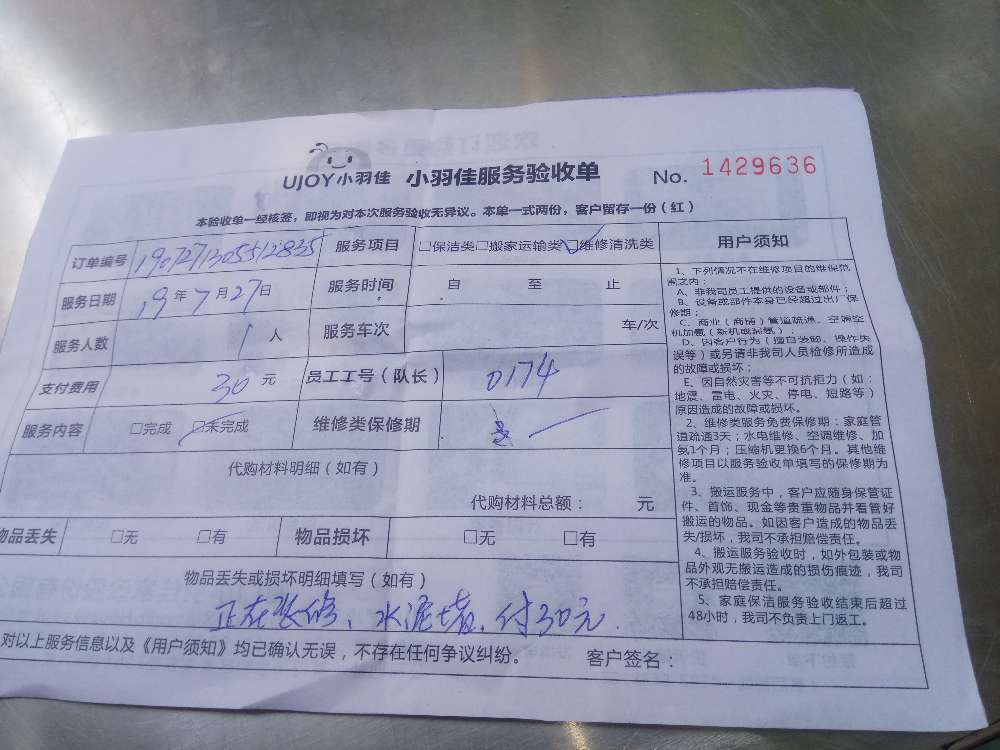 UJOY小羽佳 小羽佳服务验收单 No. 1429636
本验收单一经核签，即视为对本次服务验收无异议。本单一式两份，客户留存一份（红）
订单编号 服务项目 □保洁类□搬家运输类☑维修清洗类
服务日期 19年7月27日 服务时间 自 至 止
服务人数 1人 服务车次 车/次
支付费用 30元 员工工号（队长） 0174
服务内容 □完成 ☑未完成 维修类保修期
代购材料明细（如有）
代购材料总额： 元
物品丢失 □无 □有 物品损坏 □无 □有
物品丢失或损坏明细填写（如有）
正在装修、水泥堵，付30元
对以上服务信息以及《用户须知》均已确认无误，不存在任何争议纠纷。 客户签名：
用户须知
1、下列情况不在维修项目的维保范
围之内：
A、非我司员工提供的设备或部件；
B、设备或部件本身已经超过出厂保
修期；
C、商业（商铺）管道疏通、空调空
机加氟（新机或漏氟）；
D、因客户行为（擅自装卸、操作失
误等）或另请非我司人员检修所造成
的故障或损坏；
E、因自然灾害等不可抗拒力（如：
地震、雷电、火灾、停电、短路等）
原因造成的故障或损坏。
2、维修类服务免费保修期：家庭管
道疏通3天；水电维修、空调维修、加
氨1个月；压缩机更换6个月。其他维
修项目以服务验收单填写的保修期为
准。
3、搬运服务中，客户应随身保管证
件、首饰、现金等贵重物品并看管好
搬运的物品。如因客户造成的物品丢
失/损坏，我司不承担赔偿责任。
4、搬运服务验收时，如外包装或物
品外观无搬运造成的损伤痕迹，我司
不承担赔偿责任。
5、家庭保洁服务验收结束后超过
48小时，我司不负责上门返工。